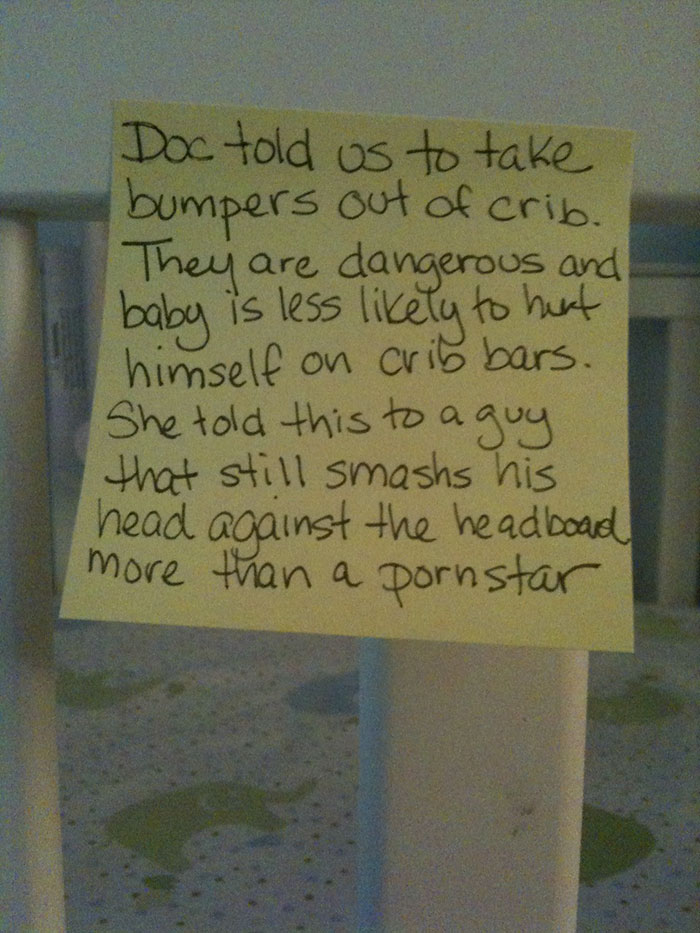 Doc told us to take
bumpers out of crib.
They are dangerous and
baby is less likely to hurt
himself on crib bars.
She told this to a guy
that still smashs his
head against the headboard
more than a pornstar